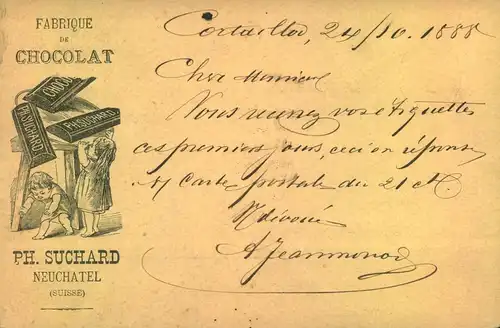 FABRIQUE
DE
CHOCOLAT
CHOCOL
PH.SUCHARD
PH.SUCHARD
PH. SUCHARD
NEUCHATEL
(SUISSE)
Cortaillod, 24/10. 1888
Cher Monsieur
Vous recevrez vos étiquettes
ces premiers jours, ceci en réponse
à/ Carte postale du 21 ct.
V dévoué
A Jeanmonod